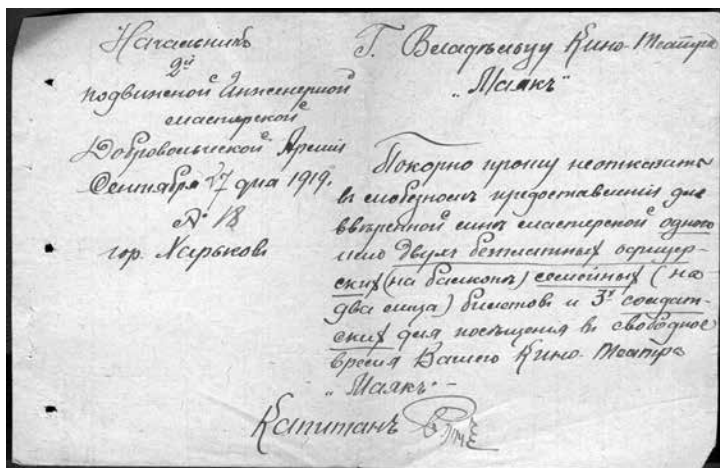 Начальникъ
2й
подвижной Инженерной
мастерской
Добровольческой Армiи
Сентября 27 дня 1919.
№ 18
гор. Харьковъ
Г. Владѣльцу Кино-Театра
"Маякъ"
Покорно прошу неотказать
въ любезномъ предоставленiи для
ввѣренной мнѣ мастерской одного
или двухъ безплатныхъ офицер-
скихъ (на балконъ) семейныхъ (на
два лица) билетовъ и 3х солдат-
скихъ для посѣщенiя въ свободное
время Вашего Кино-Театра
"Маякъ".-
Капитанъ